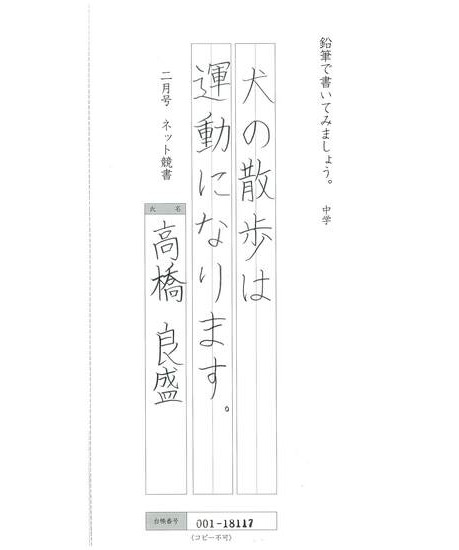 鉛筆で書いてみましょう。 中学
犬の散歩は
運動になります。
二月号 ネット競書
氏名
高橋 良盛
台帳番号 001-18117
(コピー不可)